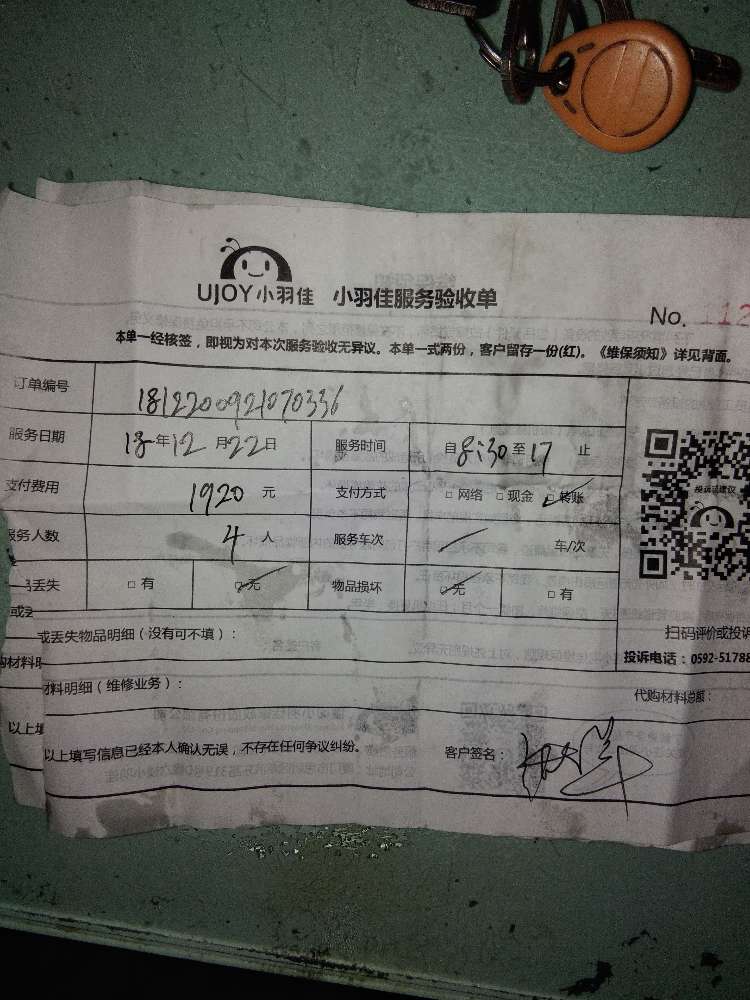 UJOY小羽佳 小羽佳服务验收单
No. 112
本单一经核签，即视为对本次服务验收无异议。本单一式两份，客户留存一份(红)。《维保须知》详见背面。
订单编号 1812200921070336
服务日期 18年12月22日 服务时间 自8:30至17止
支付费用 1920元 支付方式 □网络 □现金 □转账
服务人数 4人 服务车次 车/次
丢失 □有 □无 物品损坏 □无 □有
投诉或建议
扫码评价或投诉
投诉电话：0592-51788
或丢失物品明细（没有可不填）：
材料明细（维修业务）：
代购材料总额：
以上填写信息已经本人确认无误，不存在任何争议纠纷。 客户签名：